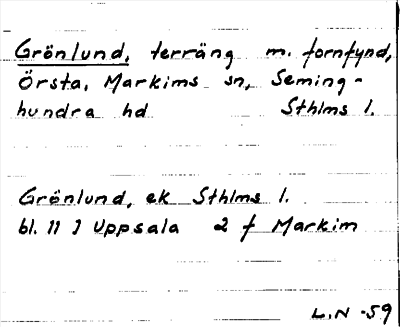 Grönlund, terräng m. fornfynd,
Örsta, Markims sn, Seming-
hundra hd Sthlms l.
Grönlund, ek Sthlms l.
bl. 11 I Uppsala 2 f Markim
L.N -59